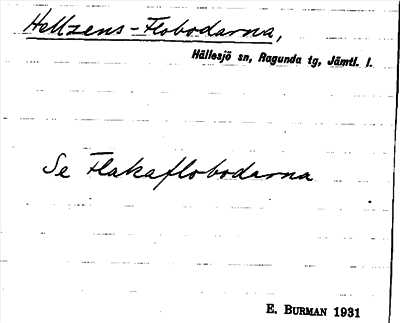 Hellzens-Flobodarna,
Hällesjö sn, Ragunda tg, Jämtl. l.
Se Flakaflobodarna
E. BURMAN 1931